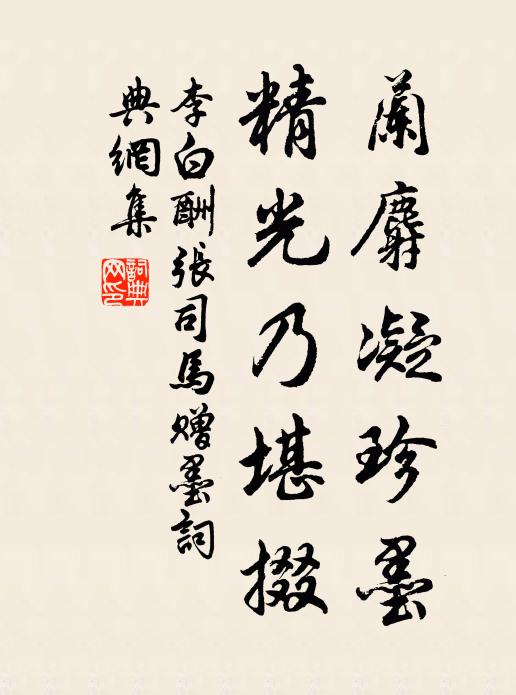 蘭麝凝珍墨
精光乃堪掇
李白酬張司馬贈墨詞
典網集
詞典
网印